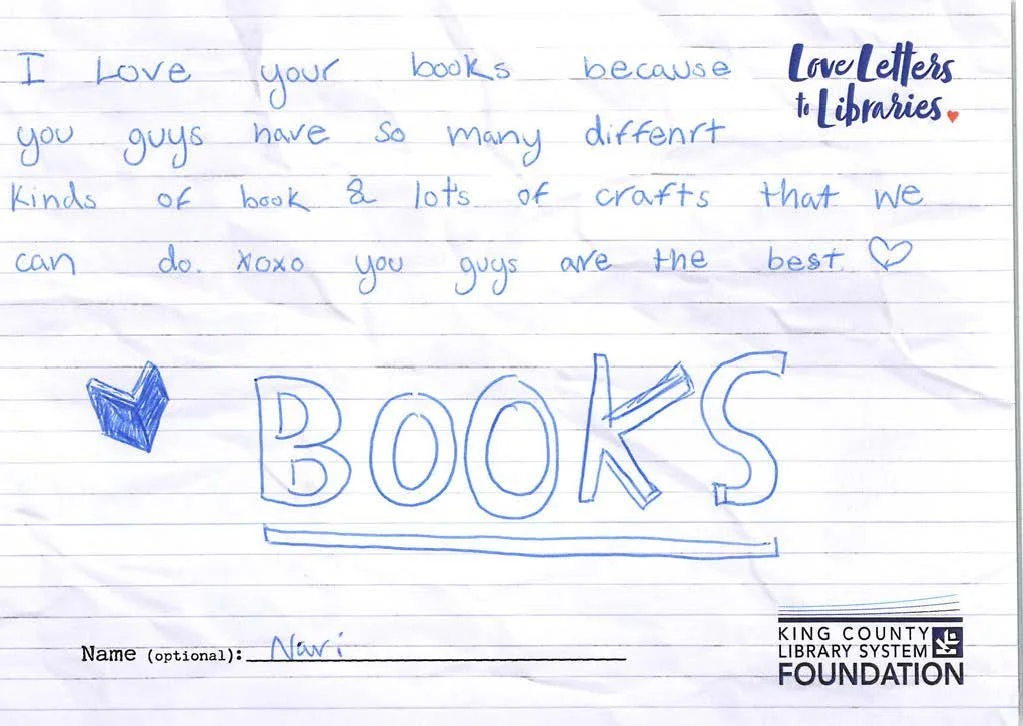 I Love your books because
you guys have so many diffenrt
kinds of book & lot's of crafts that we
can do. xoxo you guys are the best ♡
Love Letters
to Libraries
BOOKS
Name (optional): Navi
KING COUNTY
LIBRARY SYSTEM
FOUNDATION